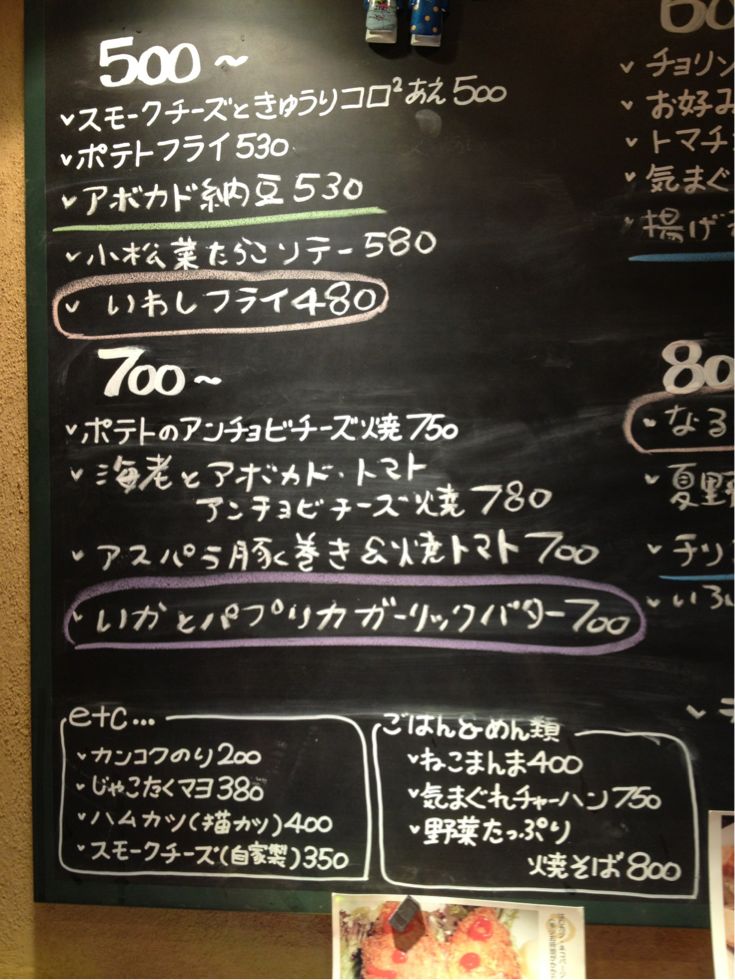 500~
スモークチーズときゅうりコロ²あえ500
ポテトフライ530
アボカド納豆530
小松菜たらこソテー580
いわしフライ480
700~
ポテトのアンチョビチーズ焼750
海老とアボカド・トマト
アンチョビチーズ焼780
アスパラ豚く巻き&焼トマト700
いかとパプリカガーリックバター700
etc...
カンコクのり200
じゃこたくマヨ380
ハムカツ(猫カツ)400
スモークチーズ(自家製)350
ごはん&めん類
ねこまんま400
気まぐれチャーハン750
野菜たっぷり
焼そば800
チョリン
お好み
トマチ
気まぐ
揚げ
80
なる
夏野
チリ
いろ